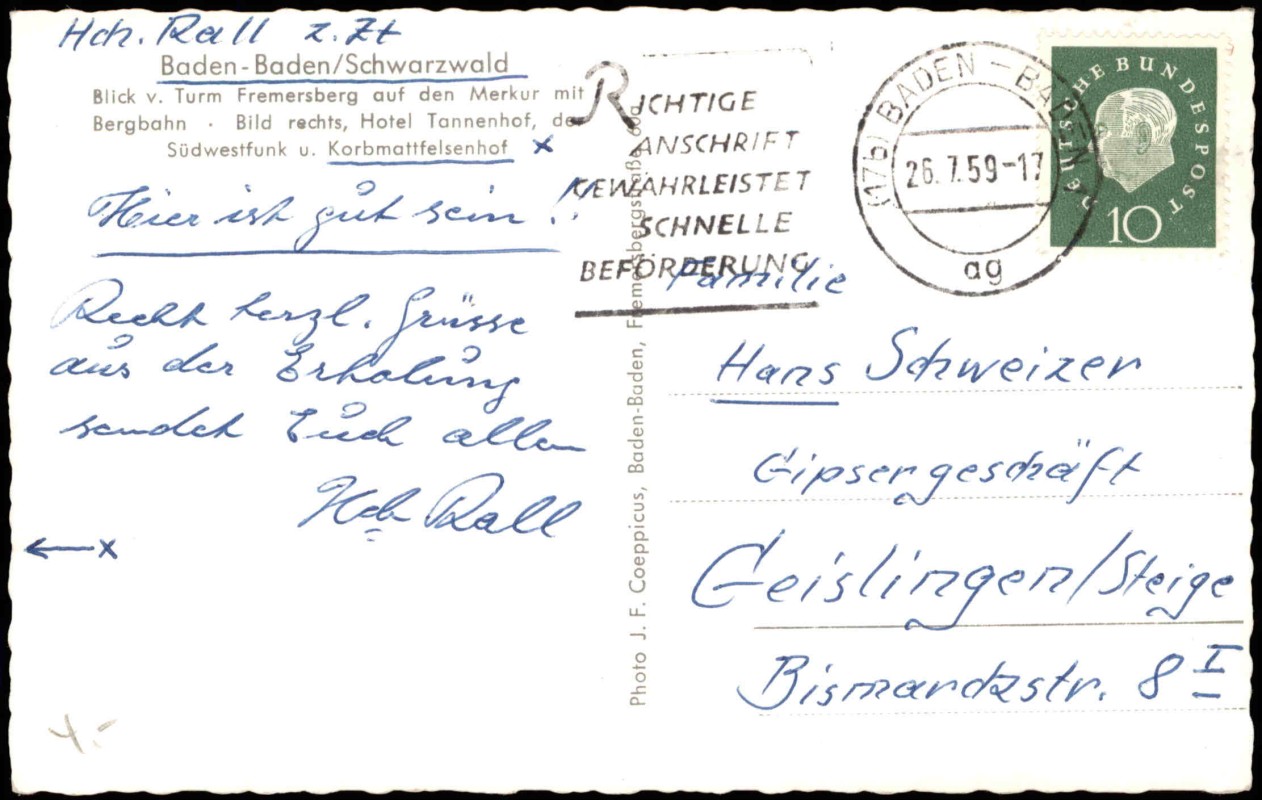 Hch. Rall z. Zt
Baden-Baden/Schwarzwald
Blick v. Turm Fremersberg auf den Merkur mit
Bergbahn · Bild rechts, Hotel Tannenhof, de
Südwestfunk u. Korbmattfelsenhof x
Hier ist gut sein !!
Recht herzl. Grüsse
aus der Erholung
sendet Euch allen
Hch Rall
←x
4.-
Photo J. F. Coeppicus, Baden-Baden, Fremersbergstraße
RICHTIGE
ANSCHRIFT
GEWÄHRLEISTET
SCHNELLE
BEFÖRDERUNG
(17b) BADEN-BADEN 2
26.7.59-17
ag
DEUTSCHE BUNDESPOST
10
Familie
Hans Schweizer
Gipsergeschäft
Geislingen/Steige
Bismarckstr. 8 I